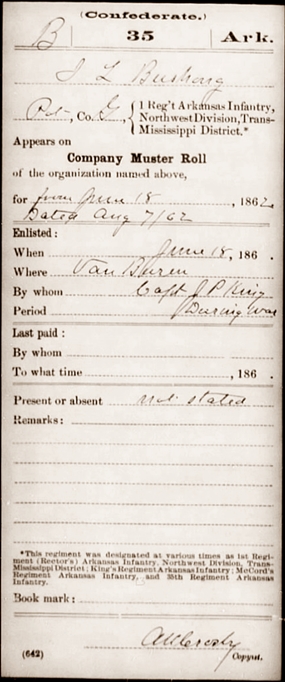 (Confederate.)
B 35 Ark.
J L Bushong
Pvt., Co. G, 1 Reg't Arkansas Infantry,
Northwest Division, Trans-
Mississippi District.*
Appears on
Company Muster Roll
of the organization named above,
for from June 18, 1862.
Dated Aug 7/62
Enlisted:
When June 18, 186 .
Where Van Buren
By whom Capt J P King
Period During War
Last paid:
By whom
To what time , 186 .
Present or absent not stated
Remarks:
*This regiment was designated at various times as 1st Regi-
ment (Rector's) Arkansas Infantry, Northwest Division, Trans-
Mississippi District; King's Regiment Arkansas Infantry; McCord's
Regiment Arkansas Infantry, and 35th Regiment Arkansas
Infantry.
Book mark:
(642) Copyist.